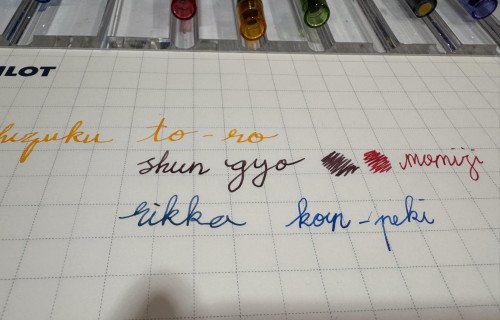 ILOT
hizuku to-ro
shun gyo momizi
rikka kon-peki